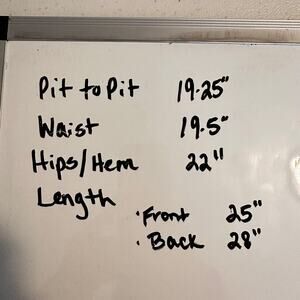 Pit to Pit 19.25"
Waist 19.5"
Hips/Hem 22"
Length
· Front 25"
· Back 28"